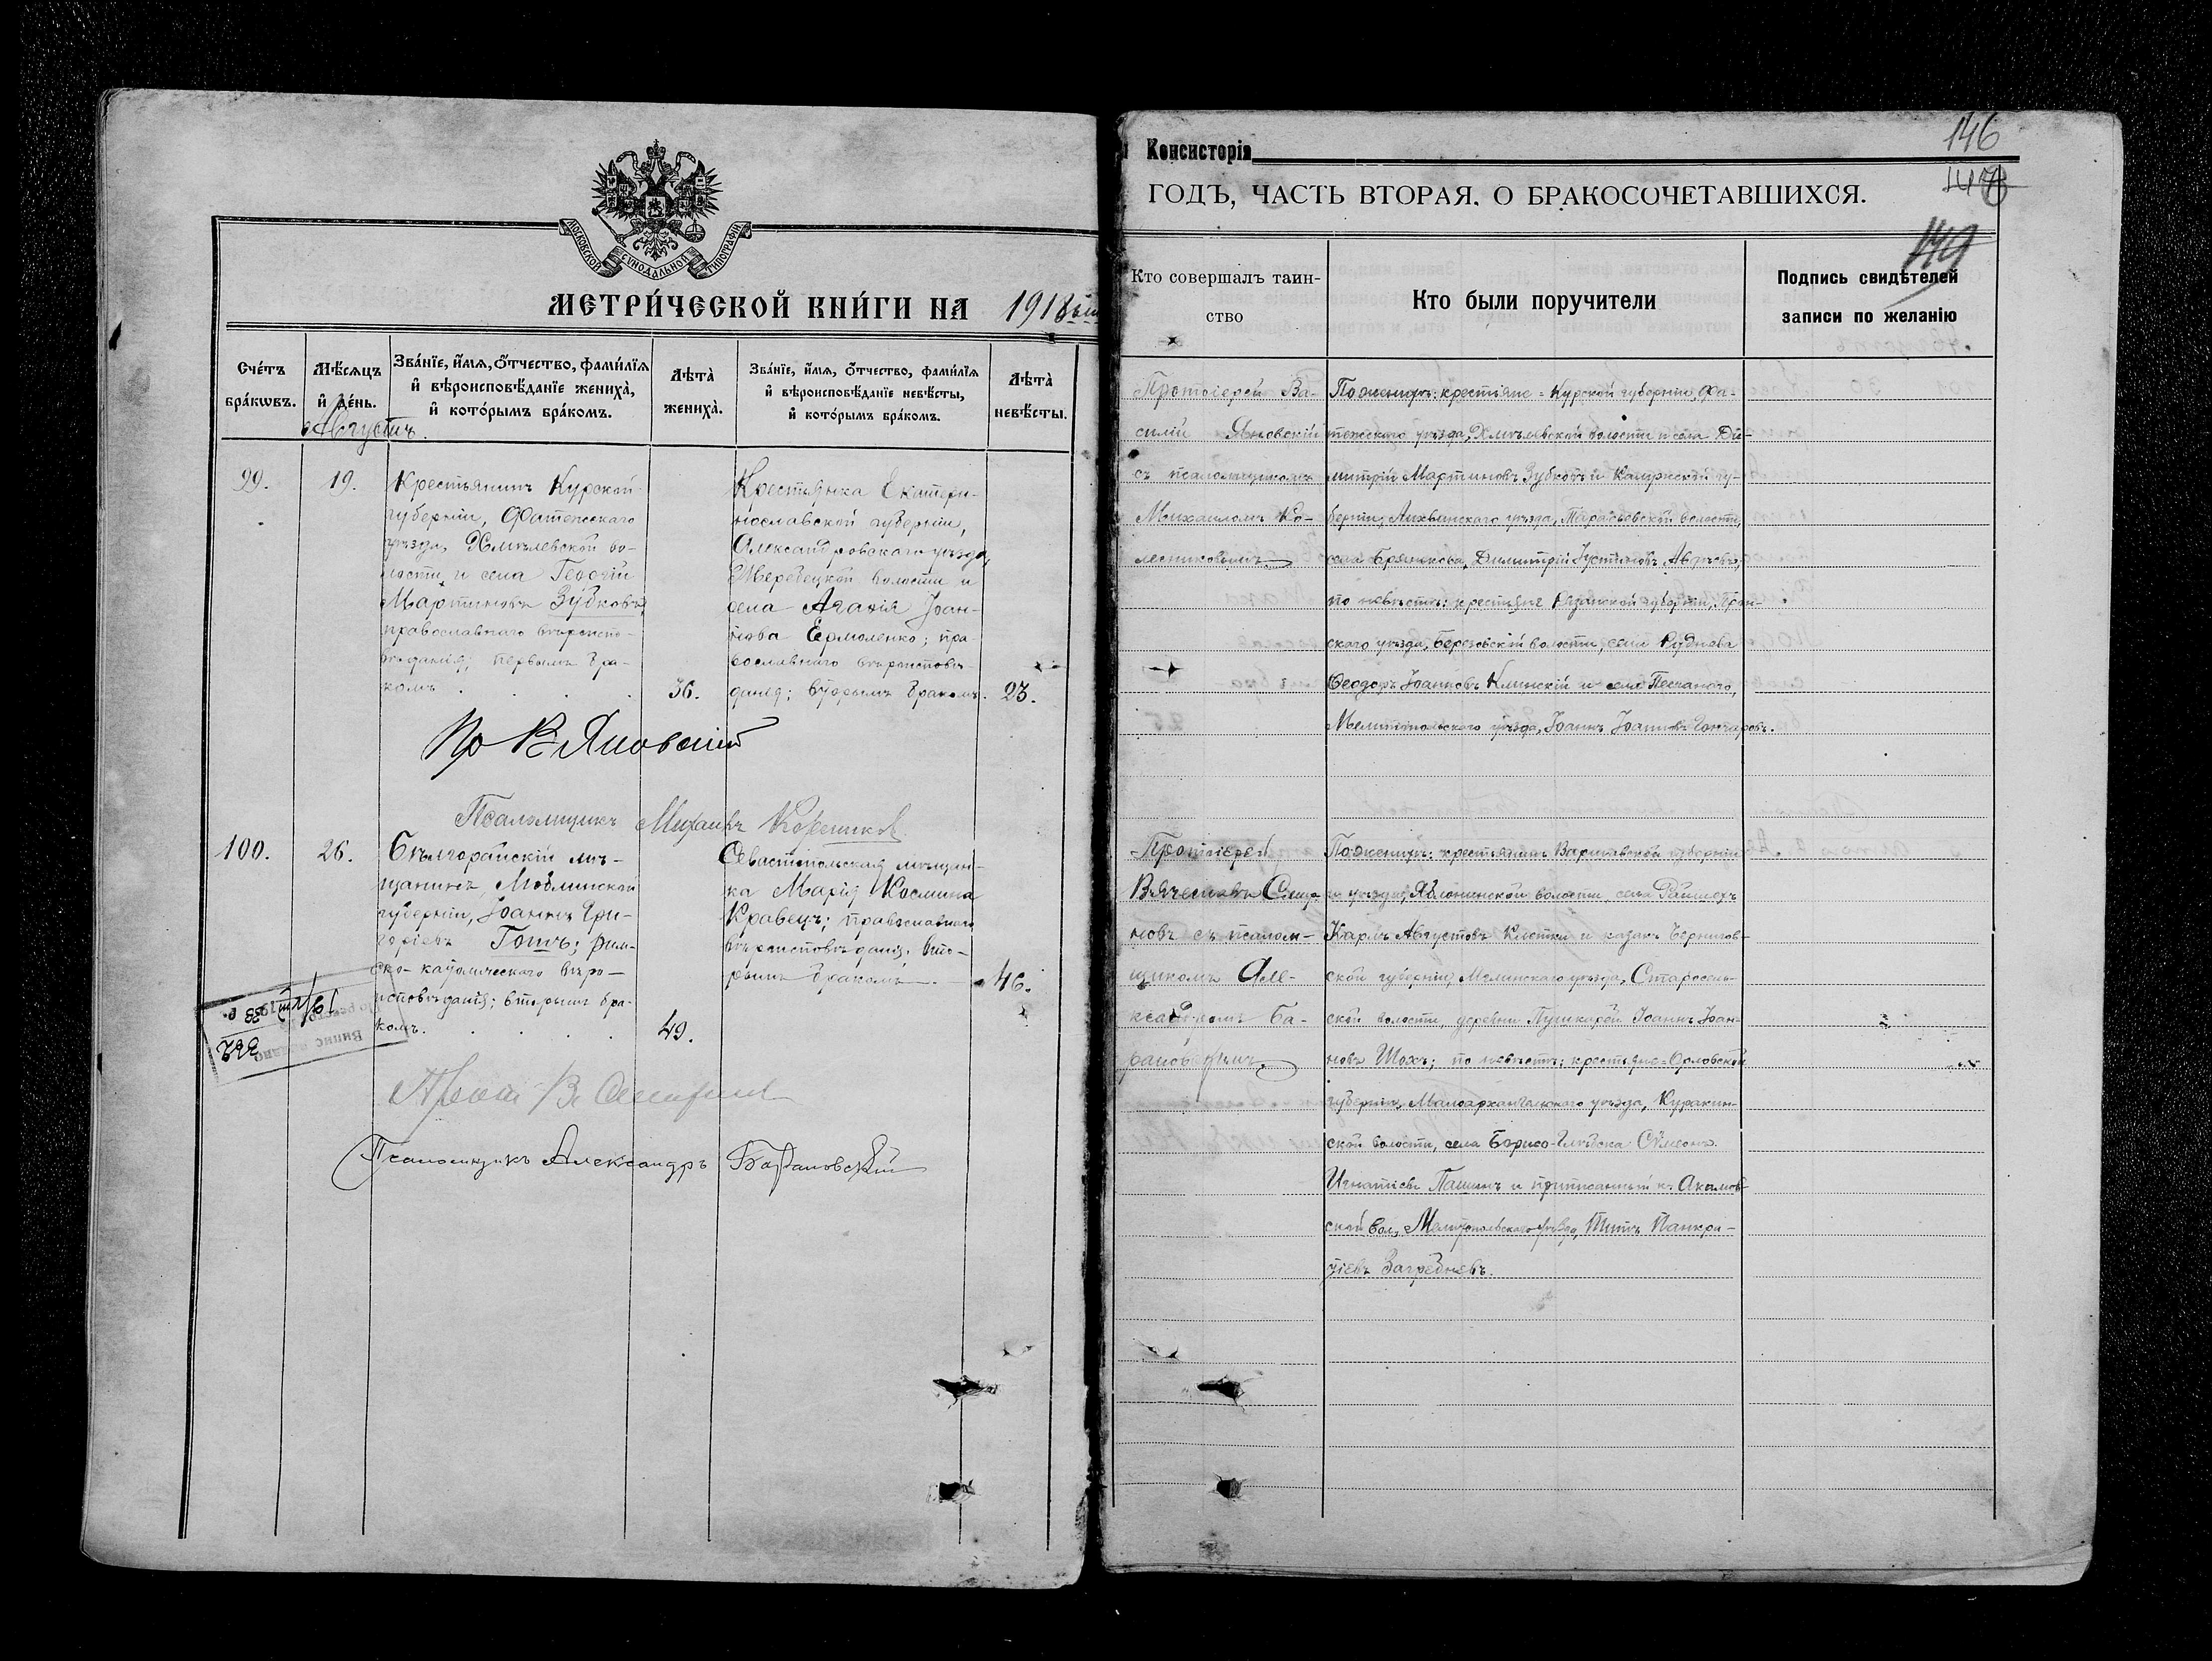 МОСКОВСКОЙ СѴНОДАЛЬНОЙ ТИПОГРАФІИ
МЕТРИ́ЧЕСКОЙ КНИ́ГИ НА 1918
Сче́тъ бра́кѡвъ.
Мѣ́сяцъ и҆ де́нь.
Зва́нїе, и҆́мѧ, ѻ҆́тчество, фами́лїѧ
и҆ вѣроисповѣ́данїе жениха̀,
и҆ кото́рымъ бра́комъ.
Лѣта̀ жениха̀.
Зва́нїе, и҆́мѧ, ѻ҆́тчество, фами́лїѧ
и҆ вѣроисповѣ́данїе невѣ́сты,
и҆ кото́рымъ бра́комъ.
Лѣта̀ невѣ́сты.
Августъ.
99.
19.
Крестьянинъ Курской
губерніи, Фатежскаго
уѣзда, Хмѣлевской во-
лости и села Георгій
Мартиновъ Зубковъ,
православнаго вѣроиспо-
вѣданія; первымъ бра-
комъ
36.
Крестьянка Екатери-
нославской губерніи,
Александровскаго уѣзда,
волости и
села Агафія Іоан-
нова Ермоленко; пра-
вославнаго вѣроисповѣ-
данія; вторымъ бракомъ.
23.
Пр В Яновскій
Псаломщикъ Михаилъ Колесников
100.
26.
Бѣлгорайскій мѣ-
щанинъ, Люблинской
губерніи, Іоаннъ Гри-
горіевъ Готъ; рим-
ско-католическаго вѣро-
исповѣданія; вторымъ бра-
комъ.
49.
Севастопольская мѣщан-
ка Марія Космина
Кравецъ; православнаго
вѣроисповѣданія. вто-
рымъ бракомъ
46.
Прот. В.
Псаломщикъ Александръ Барановскій
Консисторія
146
ГОДЪ, ЧАСТЬ ВТОРАЯ, О БРАКОСОЧЕТАВШИХСЯ.
149
Кто совершалъ таин-
ство
Кто были поручители
Подпись свидѣтелей
записи по желанію
Протоіерей Ва-
силій Яновскій
съ псаломщикомъ
Михаиломъ Ко-
лесниковымъ
По женихѣ: крестьяне = Курской губерніи, Фа-
тежскаго уѣзда, Хмѣлевской волости и села Ди-
митрій Мартиновъ Зубковъ и Калужской гу-
берніи, Лихвинскаго уѣзда, волости,
села Димитрій Іустиновъ
по невѣстѣ: крестьяне Рязанской губерніи, Прон-
скаго уѣзда, Березовской волости, села Руднева
Ѳеодоръ Іоанновъ Клинскій и села Песчанаго,
Мелитопольскаго уѣзда, Іоаннъ Іоанновъ Гончаровъ.
Протоіерей
Вячеславъ
новъ съ псалом-
щикомъ Але-
ксандромъ Ба-
рановскимъ
По женихѣ: крестьянинъ Варшавской губерніи
уѣзда, Яблонинской волости, села
Карлъ Августовъ и казакъ Чернигов-
ской губерніи, Мглинскаго уѣзда, Старосель-
ской волости, деревни Пушкарей Іоаннъ Іоан-
новъ Шохъ; по невѣстѣ: крестьяне = Орловской
губерніи, Малоархангельскаго уѣзда, Куракин-
ской волости, села Борисо-Глѣбска Сѵмеонъ
Игнатіевъ Пашинъ и приписанный къ Акимов-
ской вол, Мелитопольскаго уѣзда, Титъ Панкра-
тіевъ Загребневъ.